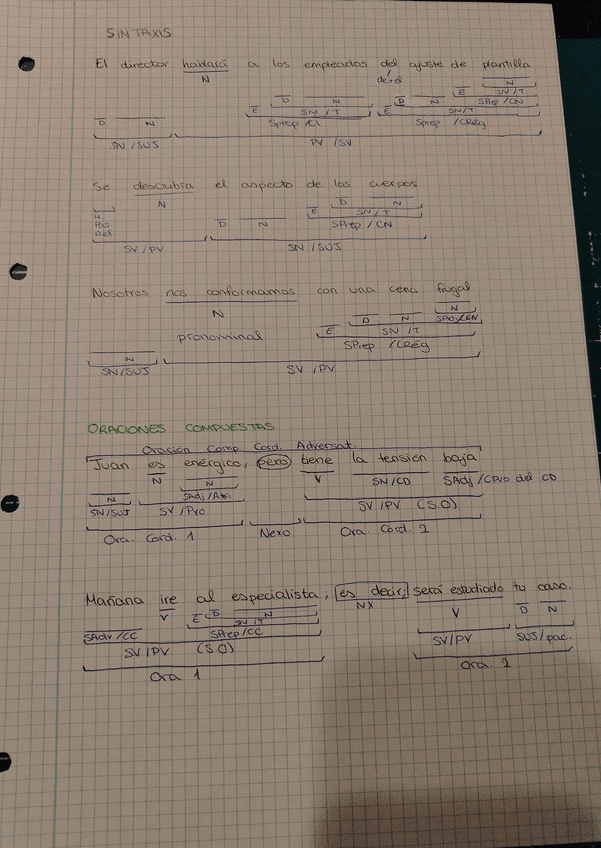 SINTAXIS
El director hablará a los empleados del ajuste de plantilla
N de+el N
D N E D N E D N E SN/T
SN/T SPrep/CN
D N Sprep/CI SN/T
SN/SUJ PV/SV Sprep/CRég
Se describía el aspecto de los cuerpos
N D N
D N E SN/T
Pas Ref SPrep/CN
SV/PV SN/SUJ
Nosotros nos conformamos con una cena frugal
N D N N
pronominal E SN/T SAdj/CN
N SPrep/CRég
SN/SUJ SV/PV
ORACIONES COMPUESTAS
Oración Comp Cord. Adversat.
Juan es enérgico, pero tiene la tensión baja
N N N V SN/CD SAdj/CPvo del CD
SN/SUJ SV/PVO SAdj/Atri. SV/PV (S.O)
Ora. Cord. 1 Nexo Ora. Cord. 2
Mañana ire al especialista, es decir, será estudiado tu caso.
V E D N NX V D N
SAdv/CC SN/T
SPrep/CC SV/PV SUJ/pac.
SV/PV (S.O)
Ora 1 Ora. 2